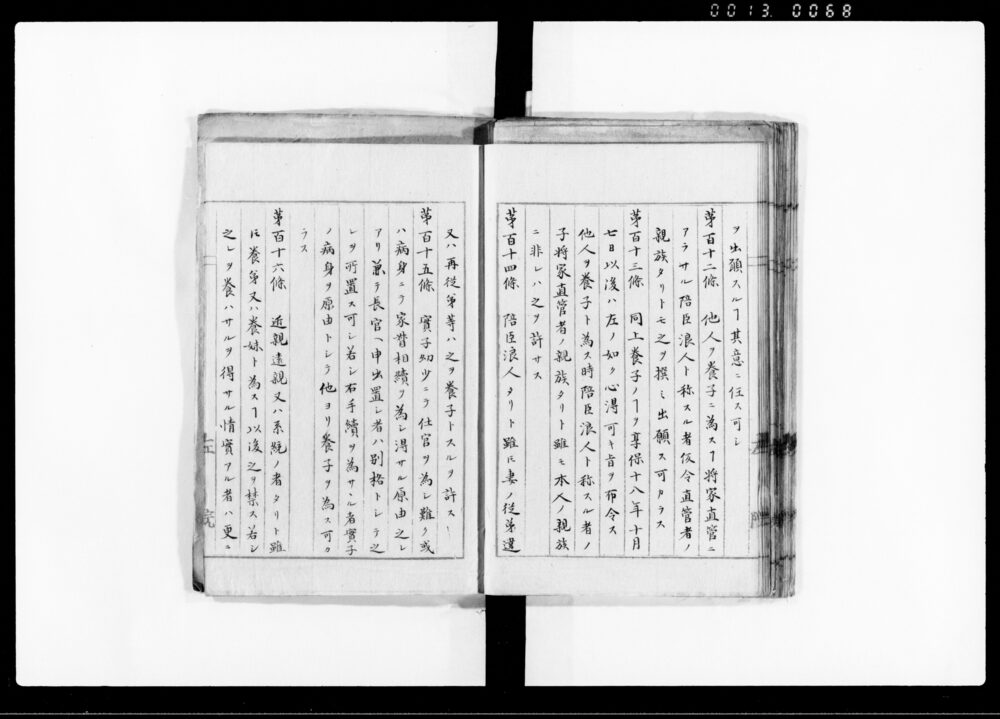 0013 0068
ヲ出願スルヿ其意ニ任ス可シ
第百十二條　他人ヲ養子ニ為スヿ将家直管ニ
アラサル陪臣浪人ト称スル者仮令直管者ノ
親族タリトモ之ヲ撰ミ出願ス可カラス
第百十三條　同上養子ノヿヲ享保十八年十月
七日以後ハ左ノ如ク心得可キ旨ヲ布令ス
他人ヲ養子ト為ス時陪臣浪人ト称スル者ノ
子将家直管者ノ親族タリト雖モ本人ノ親族
ニ非レハ之ヲ許サス
第百十四條　陪臣浪人タリト雖ㇳ妻ノ従弟違
又ハ再従弟等ハ之ヲ養子トスルヲ許ス
第百十五條　實子幼少ニテ仕官ヲ為シ難ク或
ハ病身ニテ家督相續ヲ為シ得サル原由之レ
アリ兼テ長官ヘ申出置シ者ハ別格トシテ之
レヲ所置ス可シ若シ右手續ヲ為サヽル者實子
ノ病身ヲ原由トシテ他ヨリ養子ヲ為ス可カ
ラス
第百十六條　近親遠親又ハ系統ノ者タリト雖
ㇳ養弟又ハ養妹ト為スヿ以後之ヲ禁ス若シ
之レヲ養ハサルヲ得サル情實アル者ハ更ニ
左院